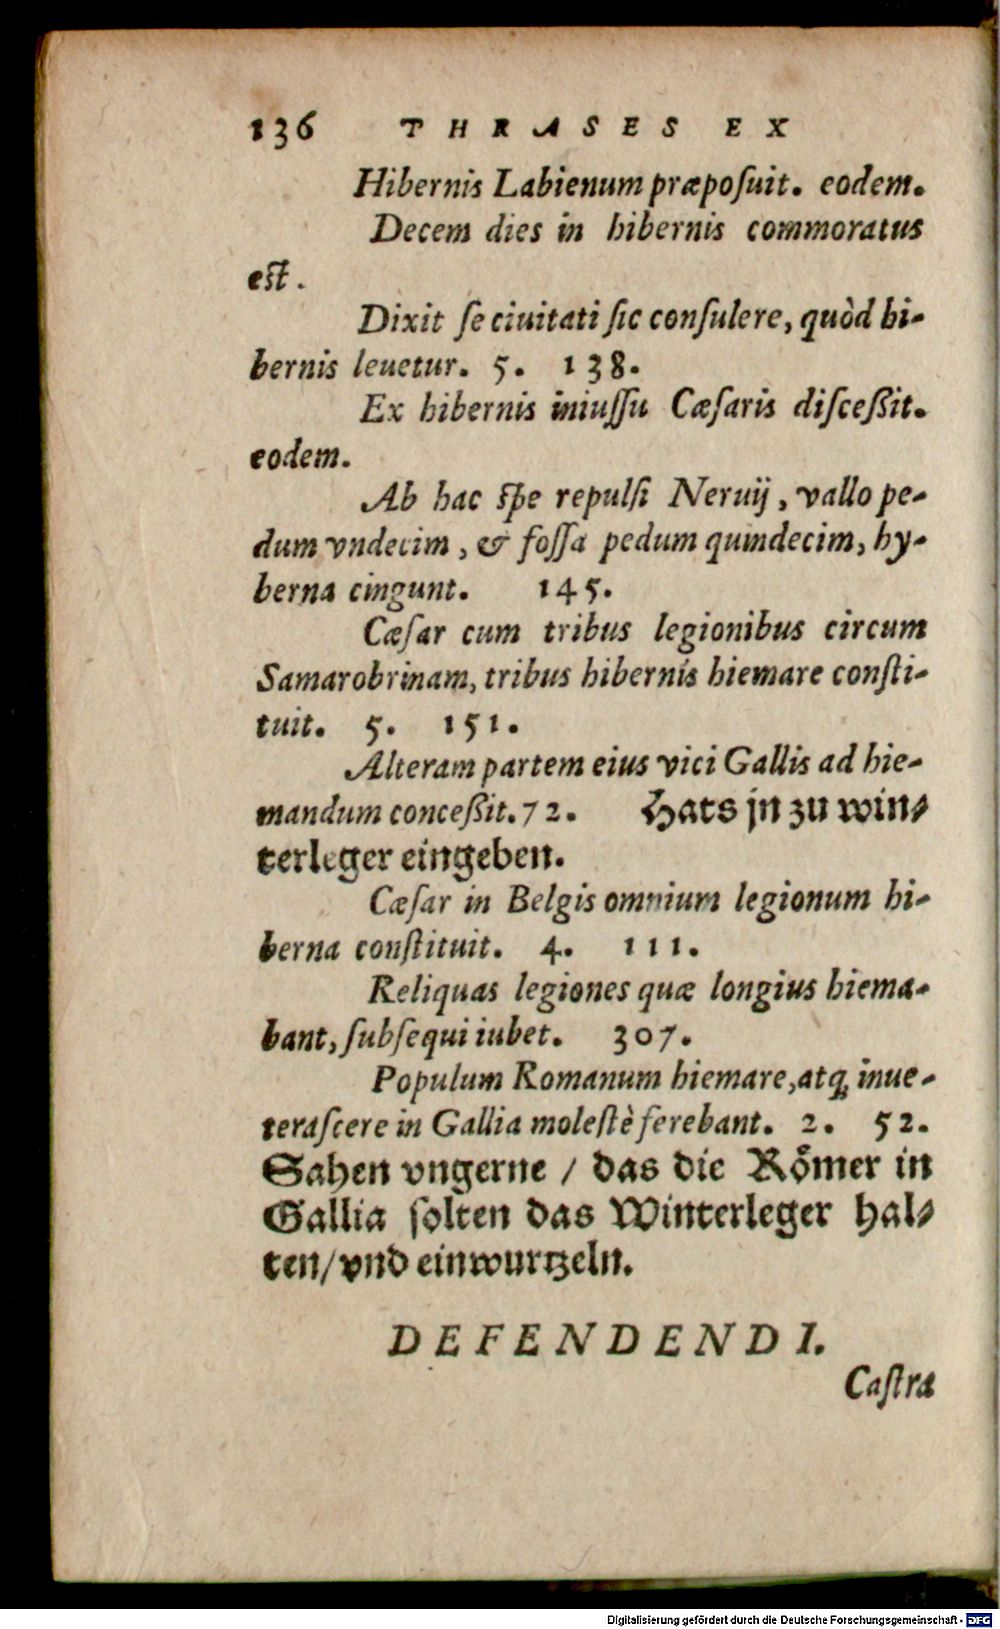 136 THRASES EX
Hibernis Labienum præpoſuit. eodem.
Decem dies in hibernis commoratus
eſt.
Dixit ſe ciuitati ſic conſulere, quòd hi-
bernis leuetur. 5. 138.
Ex hibernis iniuſſu Cæſaris diſceßit.
eodem.
Ab hac ſpe repulſi Neruij, vallo pe-
dum vndecim, & foſſa pedum quindecim, hy-
berna cingunt. 145.
Cæſar cum tribus legionibus circum
Samarobrinam, tribus hibernis hiemare conſti-
tuit. 5. 151.
Alteram partem eius vici Gallis ad hie-
mandum conceßit. 72. Hats jn zu win⸗
terleger eingeben.
Cæſar in Belgis omnium legionum hi-
berna conſtituit. 4. 111.
Reliquas legiones quæ longius hiema-
bant, ſubſequi iubet. 307.
Populum Romanum hiemare, atq; inue-
teraſcere in Gallia moleſtè ferebant. 2. 52.
Sahen vngerne / das die Roͤmer in
Gallia ſolten das Winterleger hal⸗
ten/ vnd einwurtzeln.
DEFENDENDI.
Caſtra
Digitalisierung gefördert durch die Deutsche Forschungsgemeinschaft - DFG